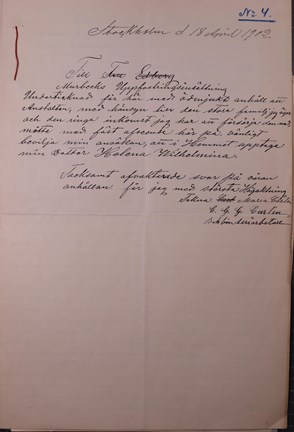 No 4.
Stockholm d 18 April 1902.
Till Fru Edberg
Murbecks Uppfostringsinrättning
Undertecknad får här med ödmjukt anhålla att
Anstalten, med hänsyn till den stora familj jag äger
och den ringa inkomst jag har att försörja den med,
måtte med fäst afseende här på, vänligt
bevilja min ansökan, att i Hemmet upptaga
min Dotter Helena Wilhelmina.
Tacksamt afvaktande svar på vår
anhållan får jag med största Högaktning
Tekna Maria
C. G. G.